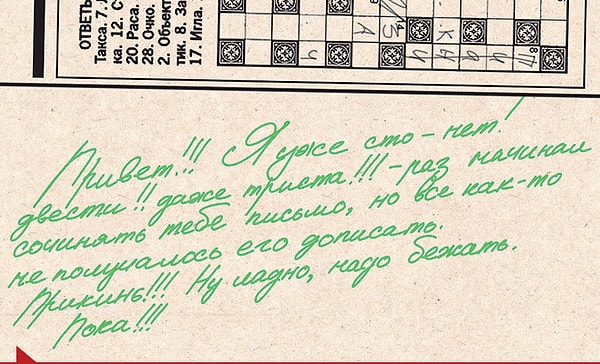 ОТВЕТЫ
Такса. 7.
ка. 12. С
20. Раса.
28. Очко.
2. Объект
тик. 8. За
17. Игла.
Привет!!! Я уже сто - нет!
двести!! даже триста!!! - раз начинал
сочинять тебе письмо, но все как-то
не получалось его дописать.
Прикинь!!! Ну ладно, надо бежать.
Пока!!!